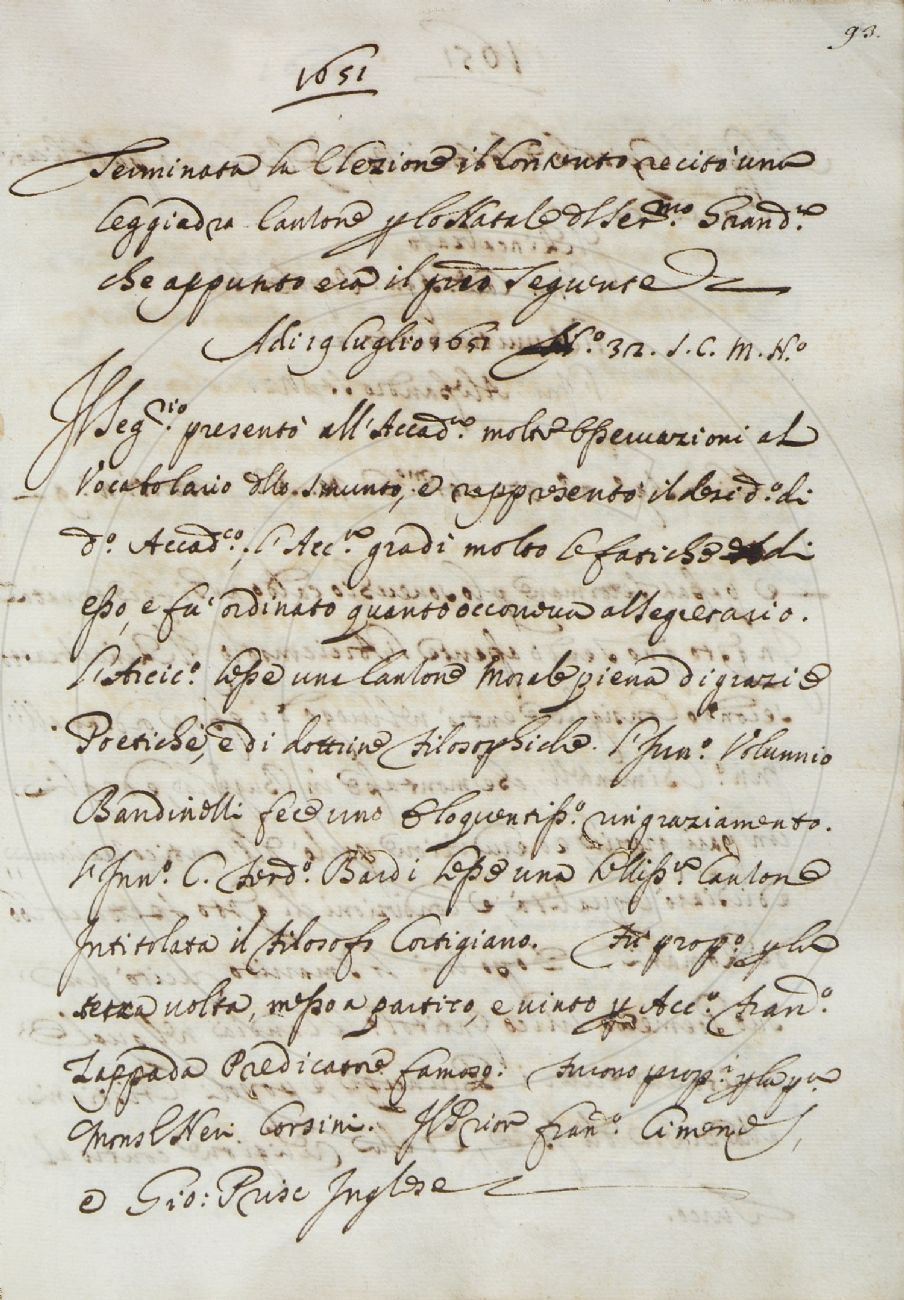 93.
1651
Terminata la Elezione il Contento recitò una
leggiadra Canzone p lo Natale d'l Ser.mo Grand.e
che appunto era il gno seguente
Adi 19 luglio 1651 N.o 32. S. C. M. N.o
Il Seg.rio presentò all'Accad.a molte Osservazioni al
Vocabolario dllo Smunto, e rappresentò il desid.o di
d.o Accad.co, l'Acc.a gradì molto le fatiche di
esso, e fu ordinato quanto occorreva al Segretario.
l'Arcic.o lesse una Canzone Morale piena di grazie
Poetiche, e di dottrine filosophiche. l'Inn.o Volunnio
Bandinelli fece uno Eloquentiss.o ringraziamento.
l'Inn.o C. Ferd.o Bardi lesse una belliss.a Canzone
Intitolata il filosofo Cortigiano. Fu prop.o p la
terza volta, messo a partito, e vinto p Acc.o Fran.o
Zappada Predicatore famoso. Furono prop.i p la p.a
Mons.l Neri Corsini. Il Prior Fran.o Cimenes,
e Gio: Price Inglese